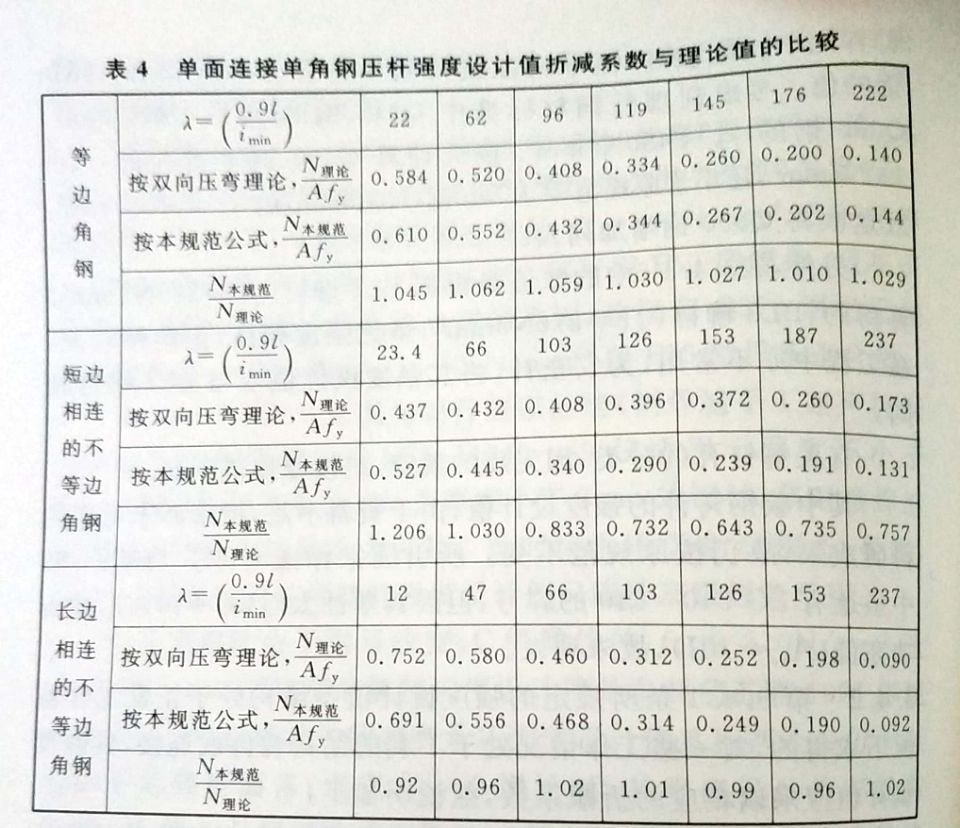 表4 单面连接单角钢压杆强度设计值折减系数与理论值的比较
等边角钢
λ=(0.9l/i_min) 22 62 96 119 145 176 222
按双向压弯理论,N理论/Af_y 0.584 0.520 0.408 0.334 0.260 0.200 0.140
按本规范公式,N本规范/Af_y 0.610 0.552 0.432 0.344 0.267 0.202 0.144
N本规范/N理论 1.045 1.062 1.059 1.030 1.027 1.010 1.029
短边相连的不等边角钢
λ=(0.9l/i_min) 23.4 66 103 126 153 187 237
按双向压弯理论,N理论/Af_y 0.437 0.432 0.408 0.396 0.372 0.260 0.173
按本规范公式,N本规范/Af_y 0.527 0.445 0.340 0.290 0.239 0.191 0.131
N本规范/N理论 1.206 1.030 0.833 0.732 0.643 0.735 0.757
长边相连的不等边角钢
λ=(0.9l/i_min) 12 47 66 103 126 153 237
按双向压弯理论,N理论/Af_y 0.752 0.580 0.460 0.312 0.252 0.198 0.090
按本规范公式,N本规范/Af_y 0.691 0.556 0.468 0.314 0.249 0.190 0.092
N本规范/N理论 0.92 0.96 1.02 1.01 0.99 0.96 1.02